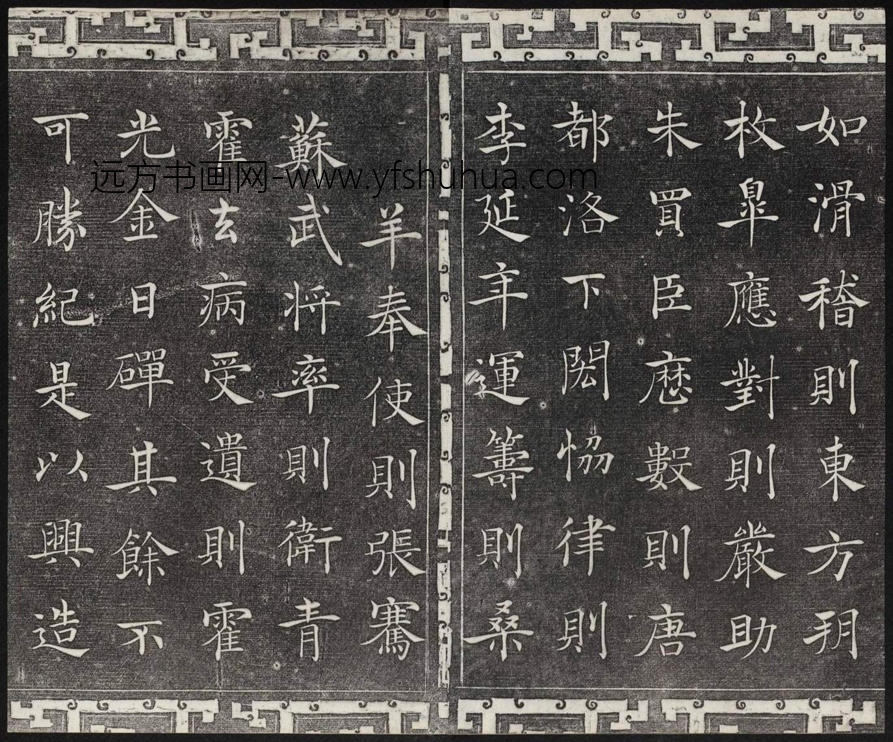 如滑稽則東方朔
枚皐應對則嚴助
朱買臣厯數則唐
都洛下閎恊律則
李延年運籌則桑
羊奉使則張騫
蘇武将率則衛青
霍去病受遺則霍
光金日磾其餘不
可勝紀是以興造
远方书画网-www.yfshuhua.com